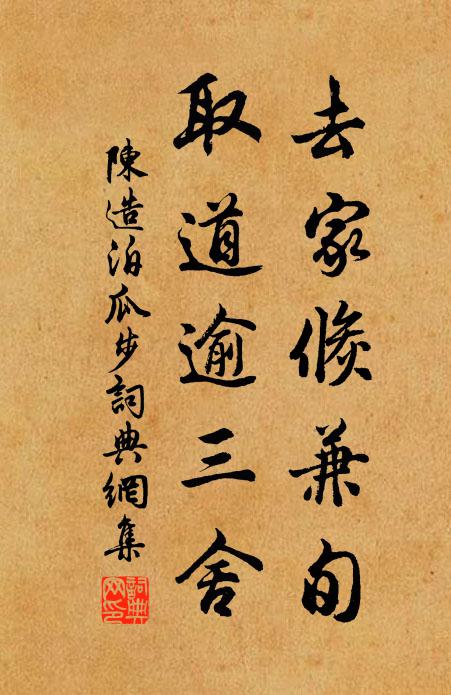 去家倏兼旬
取道逾三舍
陳造泊瓜步詞典網集
詞典網印